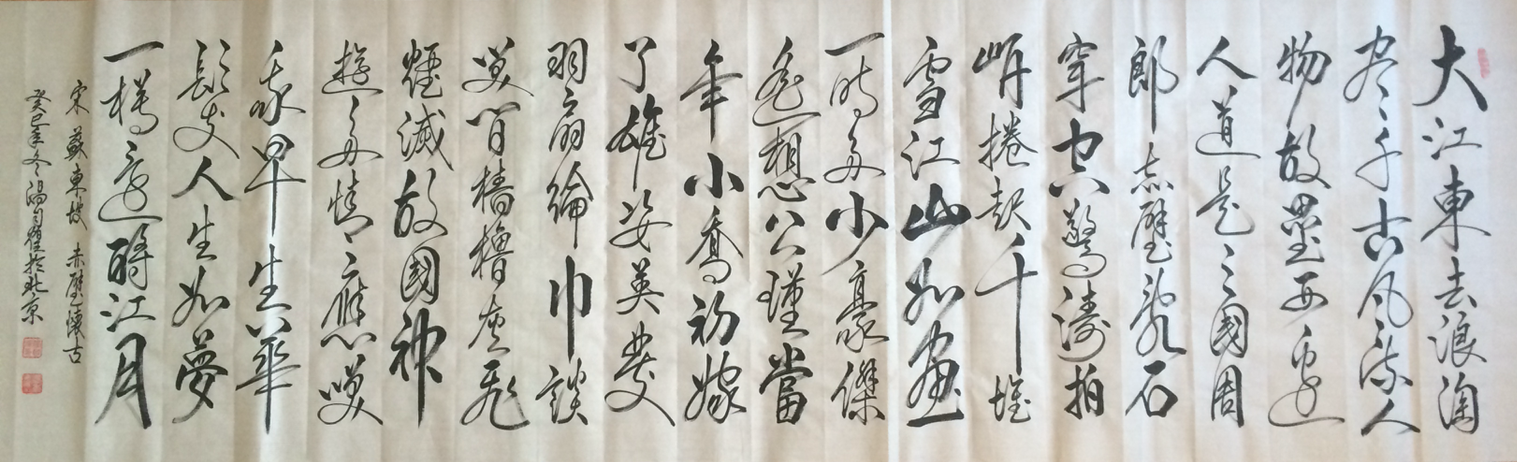 大江東去浪淘
盡千古風流人
物故壘西邊
人道是三國周
郎赤壁亂石
穿空驚濤拍
岸捲起千堆
雪江山如畫
一時多少豪傑
遙想公瑾當
年小喬初嫁
了雄姿英發
羽扇綸巾談
笑間檣櫓灰飛
煙滅故國神
遊多情應笑
我早生華
髮人生如夢
一樽還酹江月
宋蘇東坡赤壁懷古
癸巳年冬湯自耀於北京